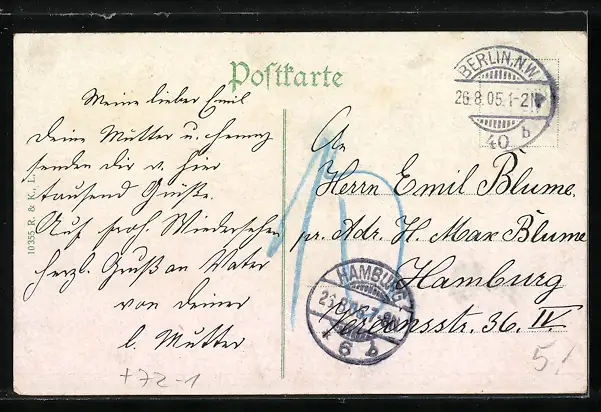 Postkarte
BERLIN, N.W.
26.8.05. 1-2N
40 b
Meine lieber Emil
deine Mutter u. Henny
senden dir v. hier
tausend Grüße.
Auf froh. Wiedersehen
herzl. Gruß an Vater
von deiner
l. Mutter
An
Herrn Emil Blume.
pr. Adr. H. Max Blume
Hamburg
Vereinsstr. 36. IV.
HAMBURG
26.8.05. 7-8N
6 b
10
10355 R. & K., L.
+72-1
5/